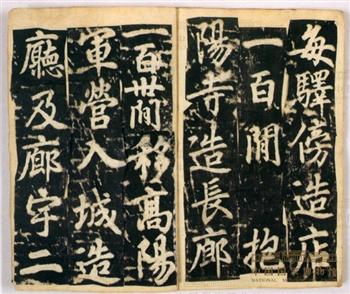 每驛傍造店
一百閒抱
陽寺造長廊
一百卅閒移高陽
軍營入城造
廳及廊宇二
NATIONAL